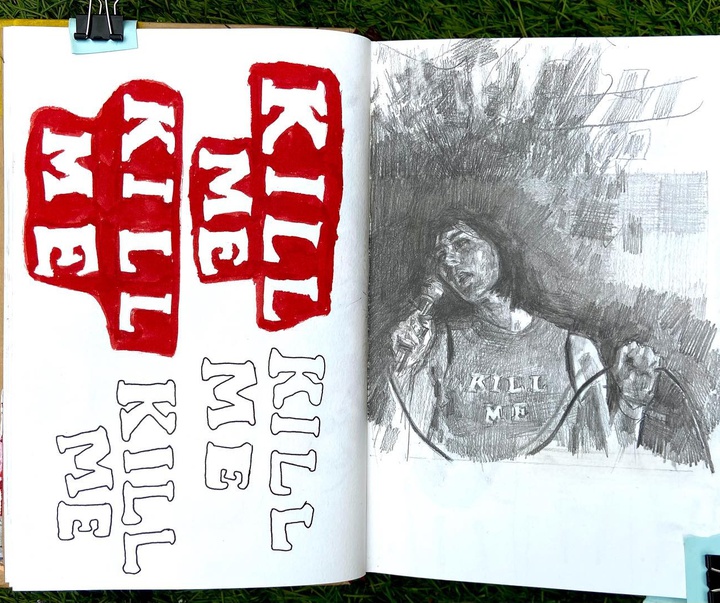 KILL
ME
KILL
ME
KILL
ME
KILL
ME
KILL
ME